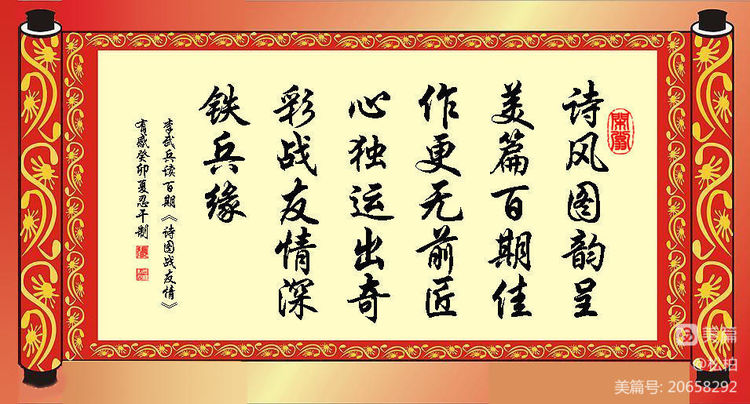 诗风图韵呈
美篇百期佳
作更无前匠
心独运出奇
彩战友情深
铁兵缘
李武兵读百期《诗图战友情》
有感癸卯夏忍干制
美篇
@松柏
美篇号: 20658292